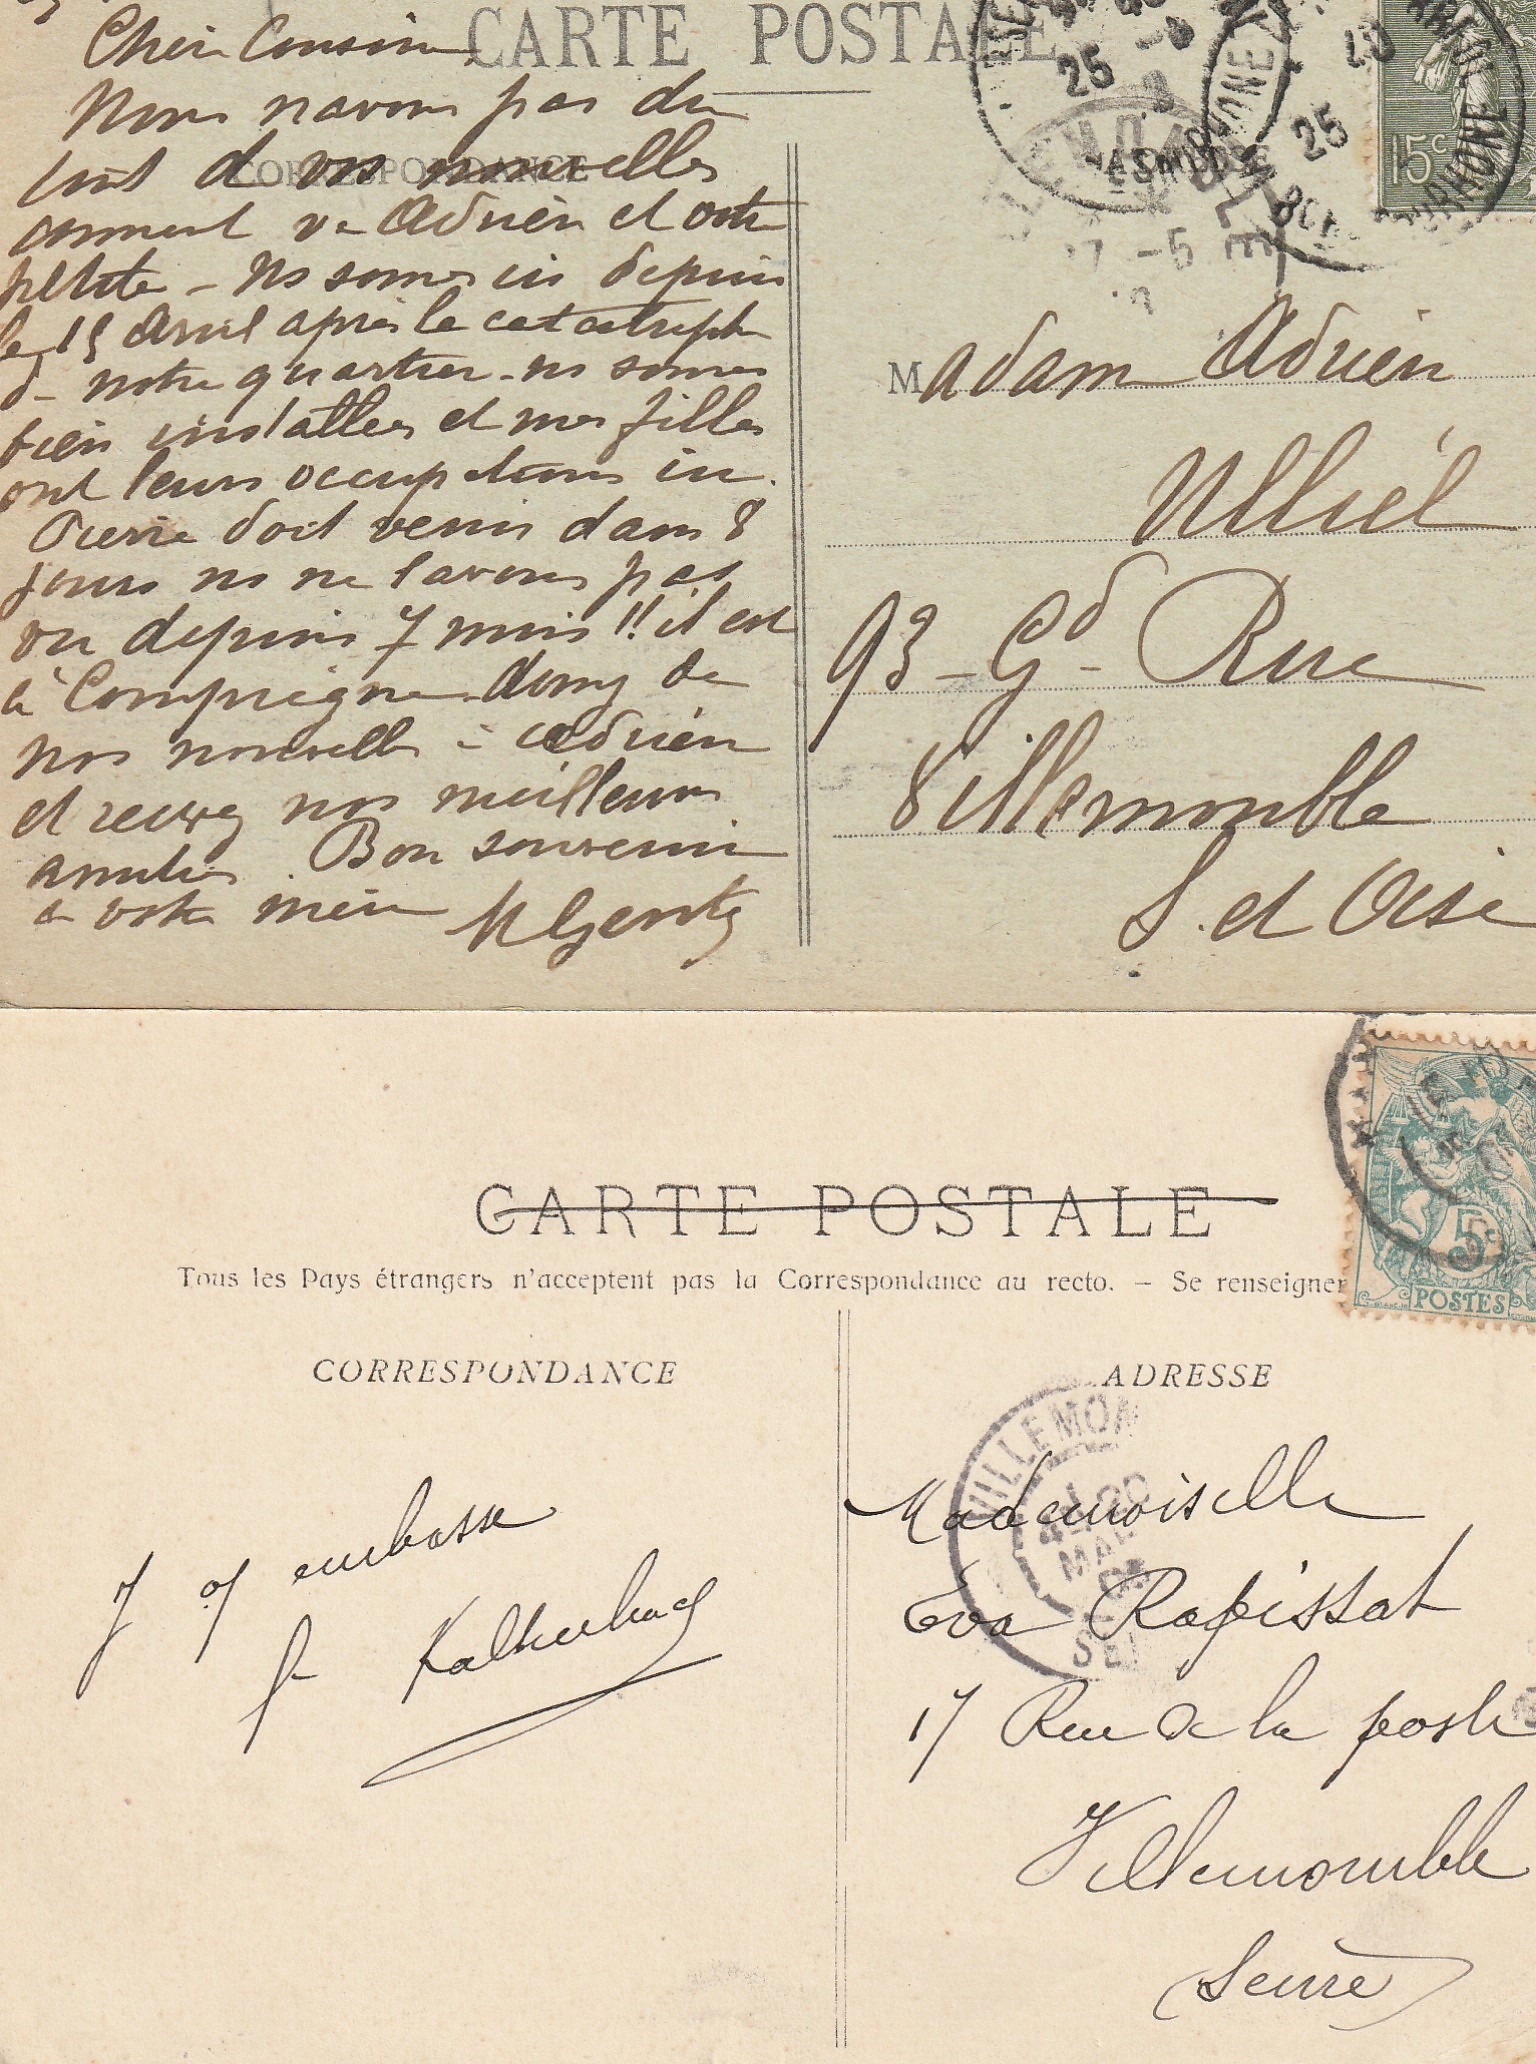 CARTE POSTALE
CORRESPONDANCE
Cher Cousin
Nous navons pas du
tout d vos nouvelles
comment va Adrien et votre
petite - ns somes ici depuis
le 15 Avril après la catastrophe
d- notre quartier - ns somes
bien installées et mes filles
ont leurs occupations ici.
Pierre doit venir dans 8
jours ns ne lavons pas
vu depuis 7 mois !! il est
à Compiègne. donnez de
nos nouvelles à Adrien
et recevez nos meilleures
amitiés. Bon souvenir
a votre mère M Gentz
15c
25
25
Madame Adrien
Ulliel
93 - Gd - Rue
Villemomble
S. et Oise
CARTE POSTALE
Tous les Pays étrangers n'acceptent pas la Correspondance au recto. - Se renseigner
5c
POSTES
CORRESPONDANCE
ADRESSE
VILLEMOM
embrasse
Kaltenbach
Mademoiselle
Eva Rapissat
17 Rue de la poste
Villemomble
Seine